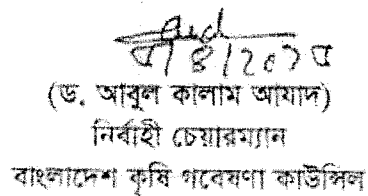 (ড. আবুল কালাম আযাদ)
নির্বাহী চেয়ারম্যান
বাংলাদেশ কৃষি গবেষণা কাউন্সিল